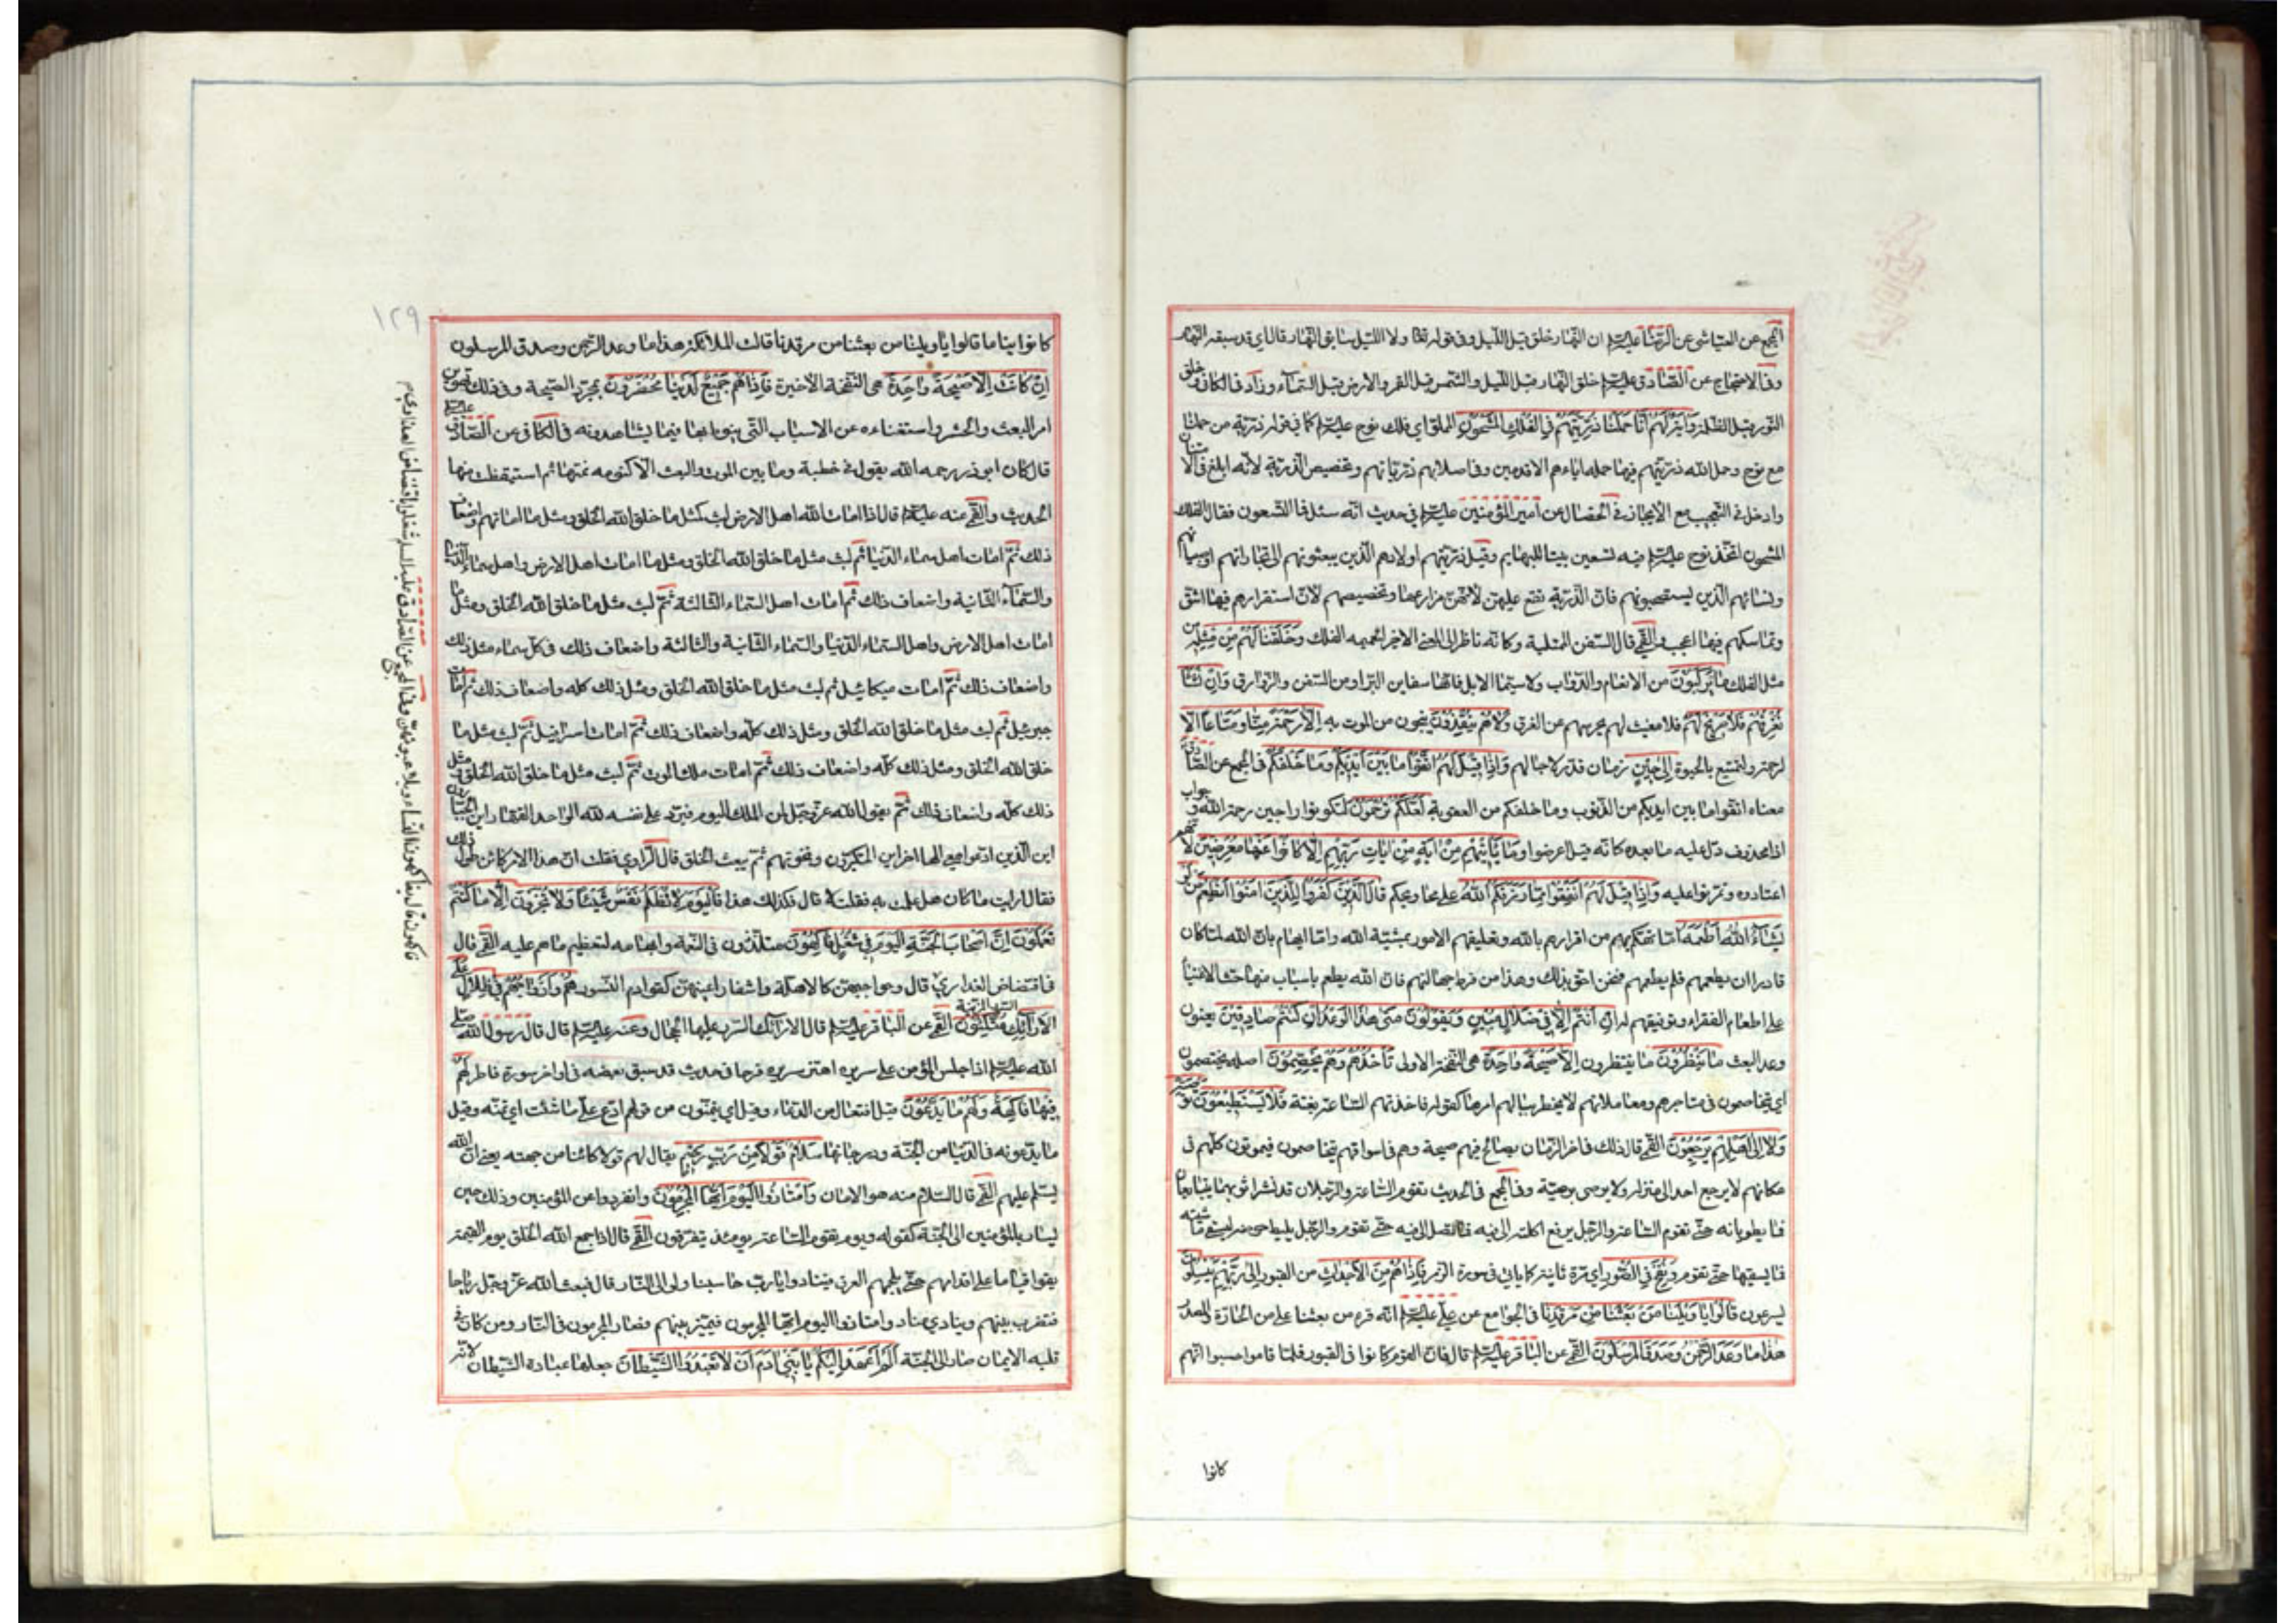 المجمع عن العياشي عن الرضا عليه السلم ان النهار خلق قبل الليل وفي قوله تعالى ولا الليل سابق النهار قال اي قد سبقه النهار
وفي الاحتجاج عن الصادق عليه السلم خلق النهار قبل الليل والشمس قبل القمر والارض قبل السماء وزاد في الكافي وخلق
النور قبل الظلمة وَآيَةٌ لَهُمْ أَنَّا حَمَلْنَا ذُرِّيَّتَهُمْ فِي الْفُلْكِ الْمَشْحُونِ المملو اي فلك نوح عليه السلم كما في قوله ذرية من حملنا
مع نوح وحمل الله ذريتهم فيها حمله اباءهم الاقدمين وفي اصلابهم ذرياتهم وتخصيص الذرية لانه ابلغ في الامتنان
وادخل في التعجب مع الايجاز في الخصال عن امير المؤمنين عليه السلم في حديث انه سئل فما التسعون فقال الفلك
المشحون اتخذ نوح عليه السلم فيه تسعين بيتا للبهايم وقيل ذريتهم اولادهم الذين يبعثونهم الى تجاراتهم او صبيانهم
ونسائهم الذين يستصحبونهم فان الذرية تقع عليهن لانهن مزارعها وتخصيصهم لان استقرارهم فيها اشق
وتماسكهم فيها اعجب والقمي قال السفن الممتلية وكانه ناظر الى المعنى الاخير لتعميمه الفلك وَخَلَقْنَا لَهُمْ مِنْ مِثْلِهِ من
مثل الفلك مَا يَرْكَبُونَ من الانعام والدواب ولا سيما الابل فانها سفاين البر او من السفن والزوارق وَإِنْ نَشَأْ
نُغْرِقْهُمْ فَلَا صَرِيخَ لَهُمْ فلا مغيث لهم يحرسهم عن الغرق وَلَا هُمْ يُنْقَذُونَ ينجون من الموت به إِلَّا رَحْمَةً مِنَّا وَمَتَاعًا الا
لرحمة ولتمتيع بالحيوة إِلَى حِينٍ زمان قدر لاجالهم وَإِذَا قِيلَ لَهُمُ اتَّقُوا مَا بَيْنَ أَيْدِيكُمْ وَمَا خَلْفَكُمْ في المجمع عن الصادق
معناه اتقوا ما بين ايديكم من الذنوب وما خلفكم من العقوبة لَعَلَّكُمْ تُرْحَمُونَ لتكونوا راجين رحمة الله وجواب
اذا محذوف دل عليه ما بعده كانه قيل اعرضوا وَمَا تَأْتِيهِمْ مِنْ آيَةٍ مِنْ آيَاتِ رَبِّهِمْ إِلَّا كَانُوا عَنْهَا مُعْرِضِينَ لانهم
اعتادوه وتمرنوا عليه وَإِذَا قِيلَ لَهُمْ أَنْفِقُوا مِمَّا رَزَقَكُمُ اللَّهُ على محاويجكم قَالَ الَّذِينَ كَفَرُوا لِلَّذِينَ آمَنُوا أَنُطْعِمُ مَنْ لَوْ
يَشَاءُ اللَّهُ أَطْعَمَهُ اما تهكم بهم من اقرارهم بالله وتعليقهم الامور بمشية الله واما ايهام بان الله لما كان
قادرا ان يطعمهم فلم يطعمهم فنحن احق بذلك وهذا من فرط جهالتهم فان الله يطعم باسباب منها حث الاغنيا
على اطعام الفقراء وتوفيقهم له إِنْ أَنْتُمْ إِلَّا فِي ضَلَالٍ مُبِينٍ وَيَقُولُونَ مَتَى هَذَا الْوَعْدُ إِنْ كُنْتُمْ صَادِقِينَ يعنون
وعد البعث مَا يَنْظُرُونَ ما ينتظرون إِلَّا صَيْحَةً وَاحِدَةً هي النفخة الاولى تَأْخُذُهُمْ وَهُمْ يَخِصِّمُونَ اصله يختصمون
اي يتخاصمون في متاجرهم ومعاملاتهم لا يخطر ببالهم امرها كقوله فاخذتهم الساعة بغتة فَلَا يَسْتَطِيعُونَ تَوْصِيَةً
وَلَا إِلَى أَهْلِهِمْ يَرْجِعُونَ القمي قال ذلك في اخر الزمان يصاح فيهم صيحة وهم في اسواقهم يتخاصمون فيموتون كلهم في
مكانهم لا يرجع احد الى منزله ولا يوصي بوصية وفي المجمع في الحديث تقوم الساعة والرجلان قد نشرا ثوبهما يتبايعان
فما يطويانه حتى تقوم الساعة والرجل يرفع اكلته الى فيه فما تصل الى فيه حتى تقوم والرجل يليط حوضه ليسقي ماشيته
فما يسقيها حتى تقوم وَنُفِخَ فِي الصُّورِ اي مرة ثانية كما ياتي في سورة الزمر فَإِذَا هُمْ مِنَ الْأَجْدَاثِ من القبور إِلَى رَبِّهِمْ يَنْسِلُونَ
يسرعون قَالُوا يَا وَيْلَنَا مَنْ بَعَثَنَا مِنْ مَرْقَدِنَا في الجوامع عن علي عليه السلم انه قرء من بعثنا على من الجارة والمصدر
هَذَا مَا وَعَدَ الرَّحْمَنُ وَصَدَقَ الْمُرْسَلُونَ القمي عن الباقر عليه السلم قال فان القوم كانوا في القبور فلما قاموا حسبوا انهم
كانوا
١٢٩
كانوا نياما قالوا يا ويلنا من بعثنا من مرقدنا قالت الملائكة هذا ما وعد الرحمن وصدق المرسلون
إِنْ كَانَتْ إِلَّا صَيْحَةً وَاحِدَةً هي النفخة الاخيرة فَإِذَا هُمْ جَمِيعٌ لَدَيْنَا مُحْضَرُونَ بمجرد الصيحة وفي ذلك تهوين
امر البعث والحشر واستغناءه عن الاسباب التي ينوط بها فيما يشاهدونه في الكافي عن الصادق عليه السلم
قال كان ابوذر رحمه الله يقول في خطبة وما بين الموت والبعث الا كنومة نمتها ثم استيقظت منها
الحديث والقمي عنه عليه السلم قال اذا امات الله اهل الارض لبث كمثل ما خلق الله الخلق ومثل ما اماتهم واضعاف
ذلك ثم امات اهل سماء الدنيا ثم لبث مثل ما خلق الله الخلق ومثل ما امات اهل الارض واهل سماء الدنيا
والسماء الثانية واضعاف ذلك ثم امات اهل السماء الثالثة ثم لبث مثل ما خلق الله الخلق ومثل ما
امات اهل الارض واهل السماء الدنيا والسماء الثانية والثالثة واضعاف ذلك في كل سماء مثل ذلك
واضعاف ذلك ثم امات ميكائيل ثم لبث مثل ما خلق الله الخلق ومثل ذلك كله واضعاف ذلك ثم امات
جبرئيل ثم لبث مثل ما خلق الله الخلق ومثل ذلك كله واضعاف ذلك ثم امات اسرافيل ثم لبث مثل ما
خلق الله الخلق ومثل ذلك كله واضعاف ذلك ثم امات ملك الموت ثم لبث مثل ما خلق الله الخلق ومثل
ذلك كله واضعاف ذلك ثم يقول الله عز وجل لمن الملك اليوم فيرد على نفسه لله الواحد القهار اين الجبارون
اين الذين ادعوا مع الها اخر اين المتكبرون ونخوتهم ثم يبعث الخلق قال الراوي فقلت ان هذا الامر كائن طول ذلك
فقال ارايت ما كان هل علمت به فقلت لا قال فكذلك هذا فَالْيَوْمَ لَا تُظْلَمُ نَفْسٌ شَيْئًا وَلَا تُجْزَوْنَ إِلَّا مَا كُنْتُمْ
تَعْمَلُونَ إِنَّ أَصْحَابَ الْجَنَّةِ الْيَوْمَ فِي شُغُلٍ فَاكِهُونَ متلذذون في النعمة وابهامه لتعظيم ما هم عليه القمي قال
في افتضاض العذارى قال وحواجبهن كالاهلة واشفار اعينهن كقوادم النسور هُمْ وَأَزْوَاجُهُمْ فِي ظِلَالٍ عَلَى
الْأَرَائِكِ السرر المزينة مُتَّكِئُونَ القمي عن الباقر عليه السلم قال الارائك السرر عليها الحجال وعنه عليه السلم قال قال رسول الله صلى
الله عليه السلم اذا جلس المؤمن على سريره اهتز سريره فرحا في حديث قد سبق بعضه في اواخر سورة فاطر لَهُمْ
فِيهَا فَاكِهَةٌ وَلَهُمْ مَا يَدَّعُونَ قيل افتعال من الدعاء وقيل اي يتمنون من قولهم ادع علي ما شئت اي تمنه وقيل
ما يدعونه في الدنيا من الجنة ودرجاتها سَلَامٌ قَوْلًا مِنْ رَبٍّ رَحِيمٍ يقال لهم قولا كائنا من جهته يعني ان الله
يسلم عليهم القمي قال السلام منه هو الامان وَامْتَازُوا الْيَوْمَ أَيُّهَا الْمُجْرِمُونَ وانفردوا عن المؤمنين وذلك حين
يسار بالمؤمنين الى الجنة كقوله ويوم تقوم الساعة يومئذ يتفرقون القمي قال اذا جمع الله الخلق يوم القيمة
بقوا قياما على اقدامهم حتى يلجمهم العرق فينادوا يا رب حاسبنا ولو الى النار قال فيبعث الله عز وجل رياحا
فتضرب بينهم وينادي مناد وامتازوا اليوم ايها المجرمون فيميز بينهم فصار المجرمون في النار ومن كان في
قلبه الايمان صار الى الجنة أَلَمْ أَعْهَدْ إِلَيْكُمْ يَا بَنِي آدَمَ أَنْ لَا تَعْبُدُوا الشَّيْطَانَ جعلها عبادة الشيطان لانه
فاكهون قال يفاكهون النساء ويلاعبونهن وفي المجمع عن الصادق عليه السلم شغلوا بافتضاض العذارى